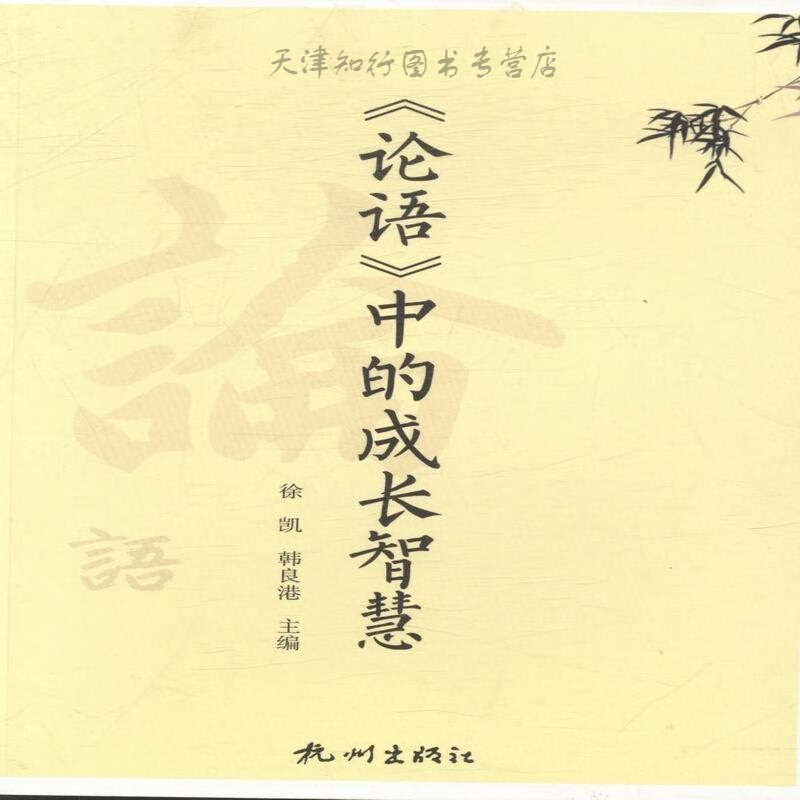 天津知行图书专营店
《论语》中的成长智慧
徐凯 韩良港 主编
論
語
杭州出版社